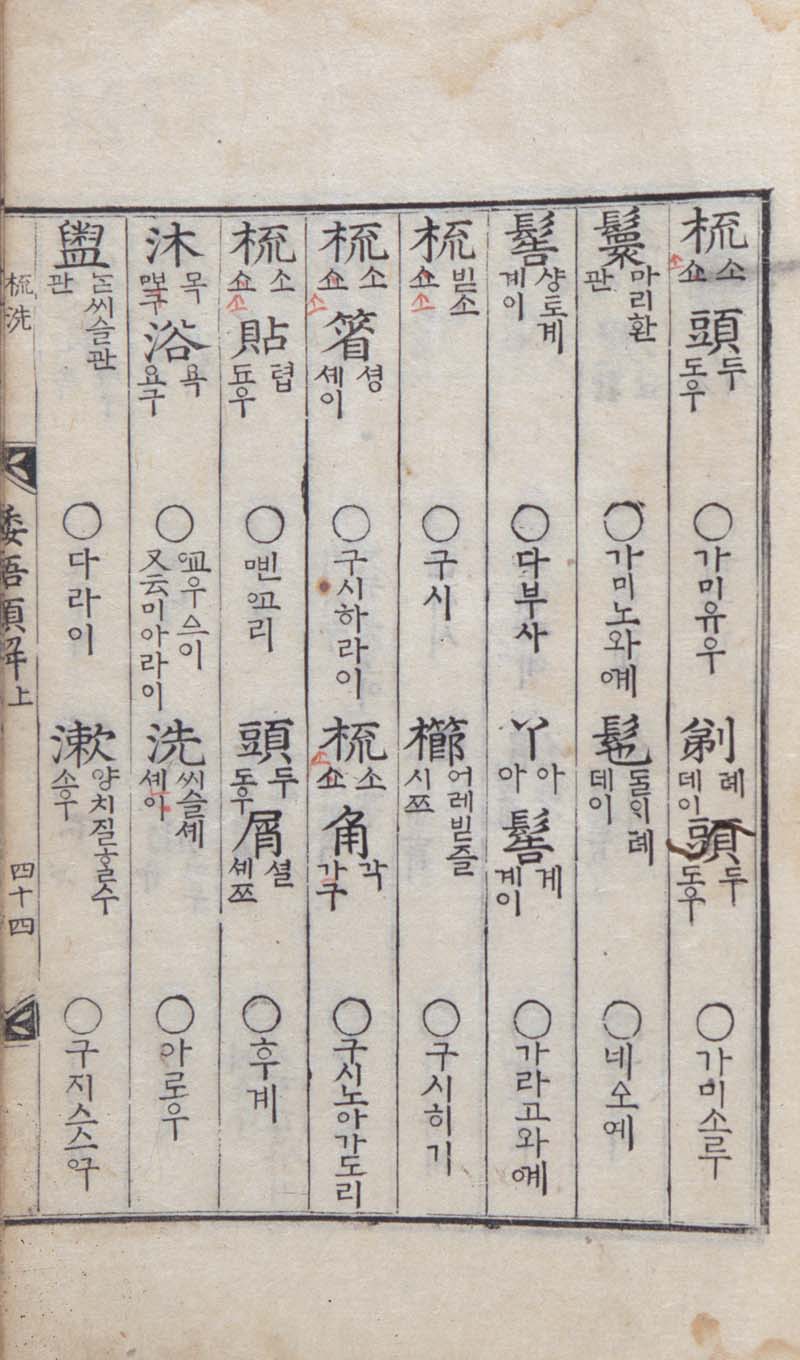 梳소쇼頭두도우○가미유우
剃톄데이頭두도우○가미소루
鬟마리환관○가미노와몌
髢둘ᄋᆡ톄데이○네소예
髻샹토계계이○다부사
丫아아髻계계이○가라고와몌
梳빋소쇼○구시
櫛어레빋즐시쯔○구시히기
梳소쇼箵셩셰이○구시하라이
梳소쇼角각가구○구시노아가도리
梳소쇼貼텹됴우○삔고리
頭두도우屑셜셰쯔○후계
沐목浴욕요구○교우스이又云미아라이
洗씨슬셰셰이○아로우
盥ᄂᆞᆺ씨슬관관○다라이
漱양치질ᄒᆞᆯ수소우○구지스스구
梳洗
倭語類解上
四十四